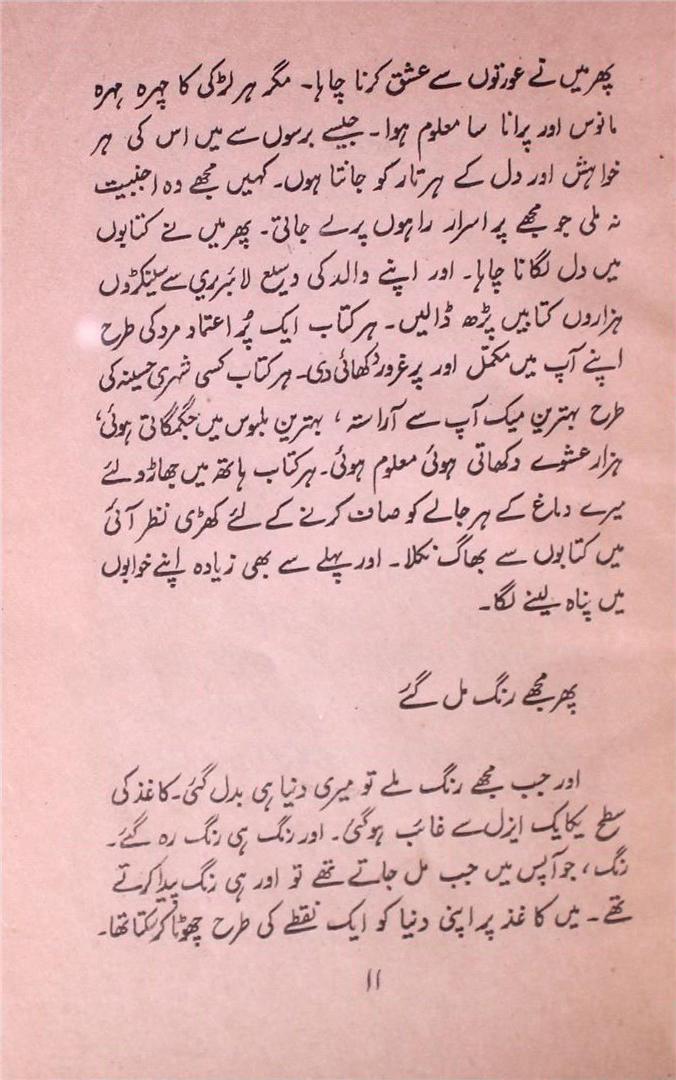 پھر میں نے عورتوں سے عشق کرنا چاہا۔ مگر ہر لڑکی کا چہرہ مہرہ
مانوس اور پرانا سا معلوم ہوا۔ جیسے برسوں سے میں اس کی ہر
خواہش اور دل کے ہر تار کو جانتا ہوں۔ کہیں مجھے وہ اجنبیت
نہ ملی جو مجھے پر اسرار راہوں پر لے جاتی۔ پھر میں نے کتابوں
میں دل لگانا چاہا۔ اور اپنے والد کی وسیع لائبریری سے سینکڑوں
ہزاروں کتابیں پڑھ ڈالیں۔ ہر کتاب ایک پُر اعتماد مرد کی طرح
اپنے آپ میں مکمّل اور پر غرور دکھائی دی۔ ہر کتاب کسی شہری حسینہ کی
طرح بہترین میک آپ سے آراستہ ، بہترین ملبوس میں جگمگاتی ہوئی،
ہزار عشوے دکھاتی ہوئی معلوم ہوئی۔ ہر کتاب ہاتھ میں جھاڑو لئے
میرے دماغ کے ہر جالے کو صاف کرنے کے لئے کھڑی نظر آئی
میں کتابوں سے بھاگ نکلا۔ اور پہلے سے بھی زیادہ اپنے خوابوں
میں پناہ لینے لگا۔
پھر مجھے رنگ مل گئے
اور جب مجھے رنگ ملے تو میری دنیا ہی بدل گئی۔ کاغذ کی
سطح یکایک ایزل سے غائب ہوگئی۔ اور رنگ ہی رنگ رہ گئے۔
رنگ ، جو آپس میں جب مل جاتے تھے تو اور ہی رنگ پیدا کرتے
تھے۔ میں کاغذ پر اپنی دنیا کو ایک نقطے کی طرح چھوٹا کر سکتا تھا۔
۱۱